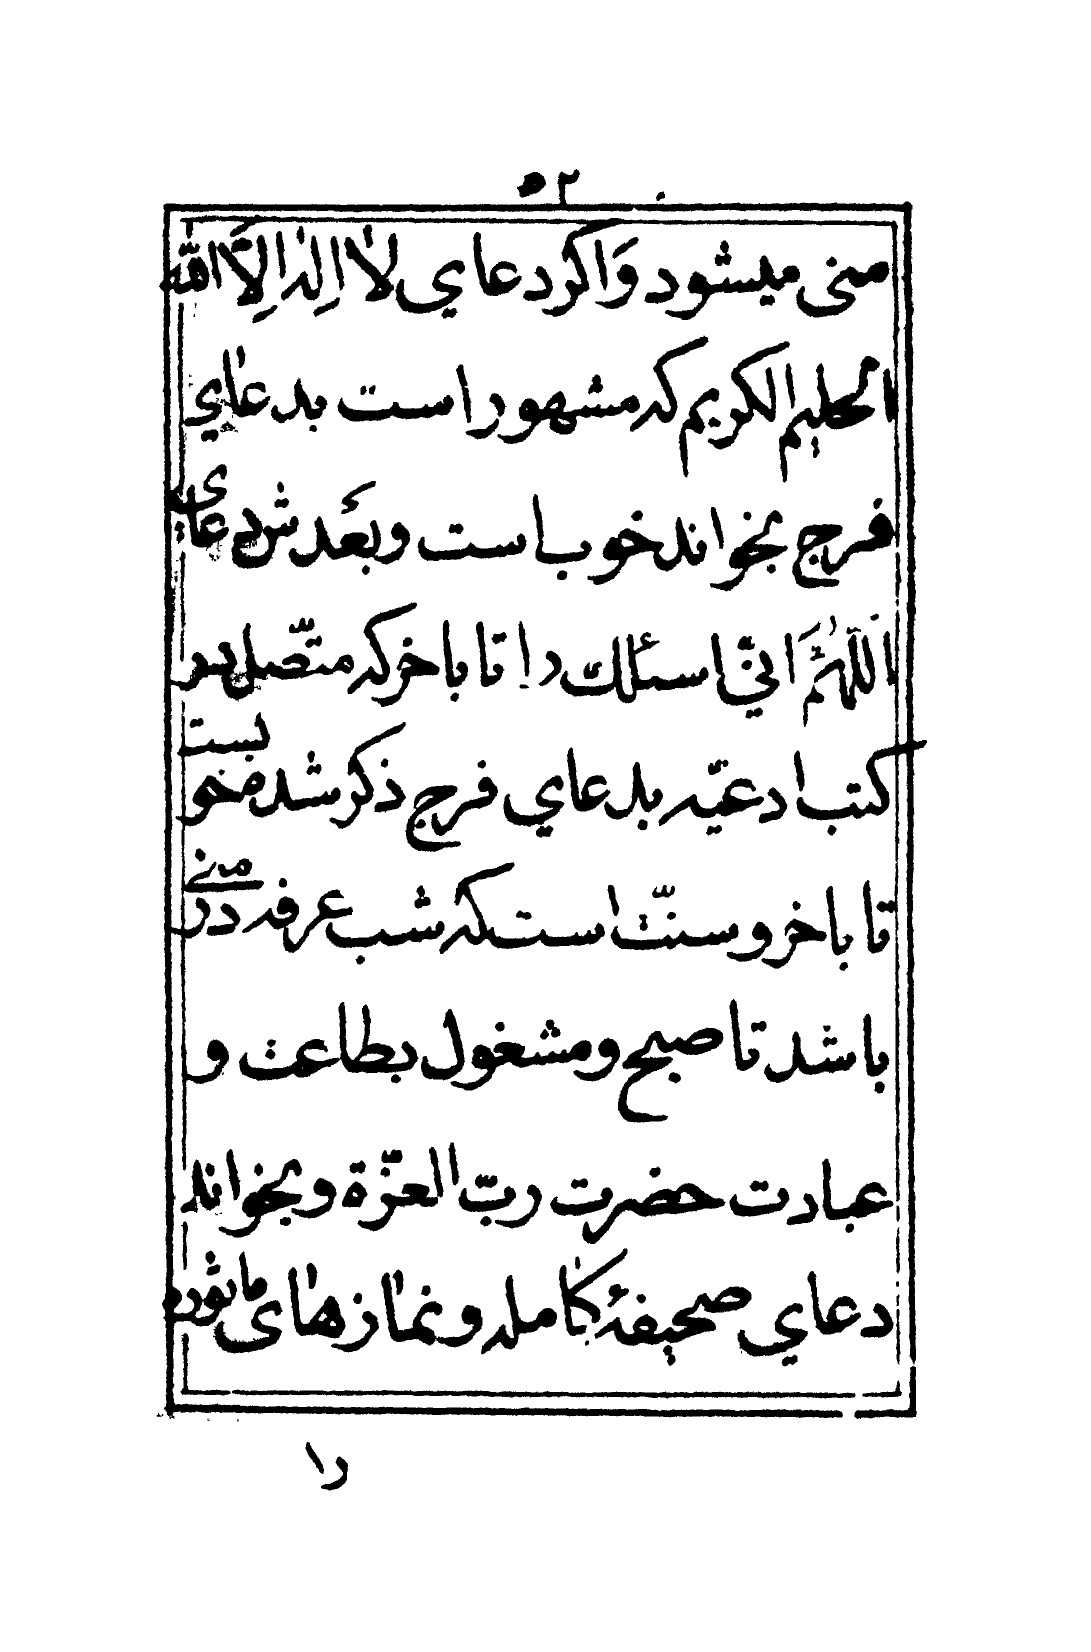 ۵۲
منی میشود وَاگر دعاي لٰا اِلٰهَ اِلَّا اللّٰه
الحلیم الکریم که مشهور است بدعٰاي
فرج بخواند خوب است و بعَد ش دعاي
اَللّٰهُمَّ انيّ اسئلك را تا باخر که متّصل بر
کتب ادعیّه بدعاي فرج ذکر شد میخو بست
تا باخر و سنّت است که شب عرفه در منے
باشد تا صبح و مشغول بطاعت و
عبادت حضرت ربّ العزّة و بخواند
دعاي صحیفهٔ کٰامله و نمٰازهٰای مٰاثوره
را